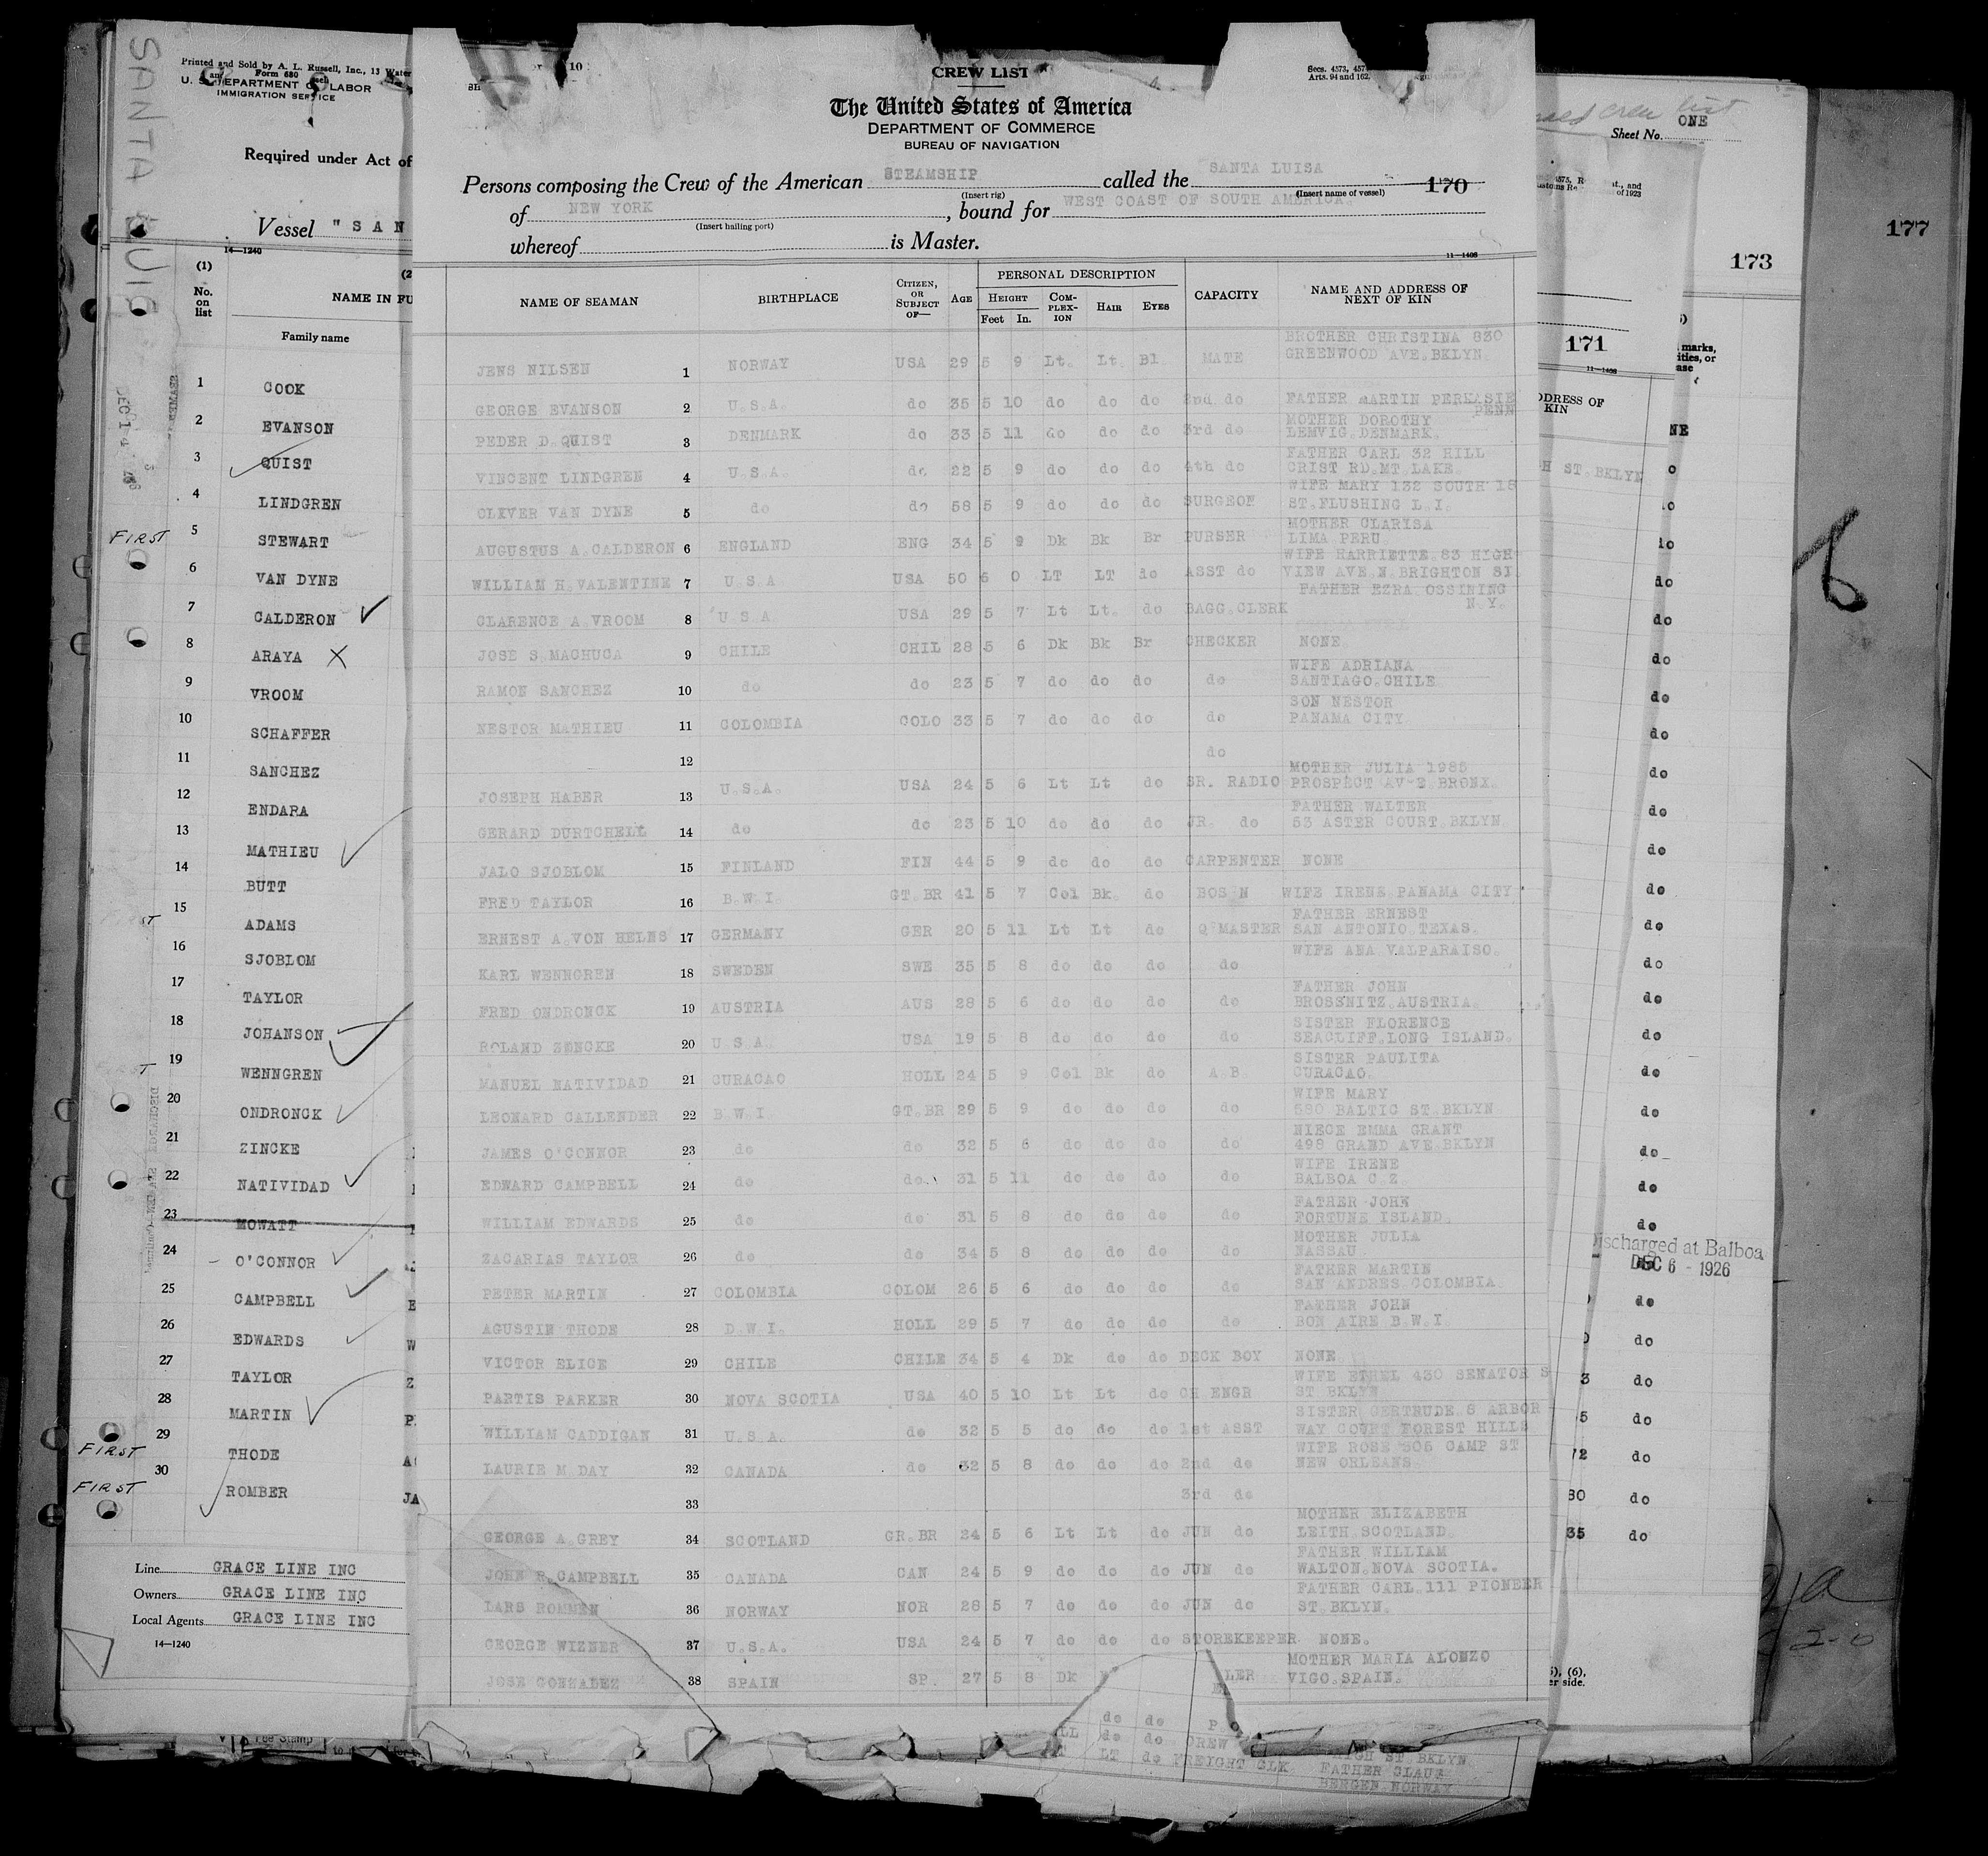 SANTA LUIS
Printed and Sold by A. L. Russell, Inc., 13 Water
Form 680
U. S. DEPARTMENT OF LABOR
IMMIGRATION SERVICE
Required under Act of
Vessel "SAN
14—1240
(1)
No. on list
NAME IN FU
Family name
1 COOK
2 EVANSON
3 QUIST
4 LINDGREN
FIRST 5 STEWART
6 VAN DYNE
7 CALDERON
8 ARAYA X
9 VROOM
10 SCHAFFER
11 SANCHEZ
12 ENDARA
13 MATHIEU
14 BUTT
15 ADAMS
16 SJOBLOM
17 TAYLOR
18 JOHANSON
19 WENNGREN
20 ONDRONCK
21 ZINCKE
22 NATIVIDAD
23 MOWATT
24 O'CONNOR
25 CAMPBELL
26 EDWARDS
27 TAYLOR
28 MARTIN
FIRST 29 THODE
FIRST 30 ROMBER
Line GRACE LINE INC
Owners GRACE LINE INC
Local Agents GRACE LINE INC
14—1240
CREW LIST
Secs. 4573, 457
Arts. 94 and 162,
The United States of America
DEPARTMENT OF COMMERCE
BUREAU OF NAVIGATION
Persons composing the Crew of the American STEAMSHIP called the SANTA LUISA
(Insert rig) (Insert name of vessel) 170
of NEW YORK, bound for WEST COAST OF SOUTH AMERICA.
(Insert hailing port)
whereof is Master.
11—1408
NAME OF SEAMAN BIRTHPLACE CITIZEN, OR SUBJECT OF— AGE PERSONAL DESCRIPTION CAPACITY NAME AND ADDRESS OF NEXT OF KIN
HEIGHT COM-PLEX-ION HAIR EYES
Feet In.
JENS NILSEN 1 NORWAY USA 29 5 9 Lt. Lt. Bl MATE BROTHER CHRISTINA 830 GREENWOOD AVE.BKLYN.
GEORGE EVANSON 2 U.S.A. do 35 5 10 do do do 2nd. do FATHER MARTIN PERKASIE PENN
PEDER D.QUIST 3 DENMARK do 33 5 11 do do do 3rd do MOTHER DOROTHY LEMVIG.DENMARK.
VINCENT LINDGREN 4 U.S.A. do 22 5 9 do do do 4th do FATHER CARL 32 HILL CRIST RD.MT.LAKE.
OLIVER VAN DYNE 5 do do 58 5 9 do do do SURGEON WIFE MARY 132 SOUTH 18 ST.FLUSHING L.I.
AUGUSTUS A.CALDERON 6 ENGLAND ENG 34 5 9 Dk Bk Br PURSER MOTHER CLARISA LIMA PERU.
WILLIAM H.VALENTINE 7 U.S.A USA 50 6 0 LT LT do ASST do WIFE HARRIETTE.83 HIGH VIEW AVE.N.BRIGHTON SI.
CLARENCE A.VROOM 8 U.S.A USA 29 5 7 Lt Lt. do BAGG.CLERK FATHER EZRA OSSINING N.Y.
JOSE S.MACHUCA 9 CHILE CHIL 28 5 6 Dk Bk Br CHECKER NONE
RAMON SANCHEZ 10 do do 23 5 7 do do do do WIFE ADRIANA SANTIAGO.CHILE
NESTOR MATHIEU 11 COLOMBIA COLO 33 5 7 do do do do SON NESTOR PANAMA CITY
12 do
JOSEPH HABER 13 U.S.A. USA 24 5 6 Lt Lt do SR. RADIO MOTHER JULIA 1985 PROSPECT AV-E.BRONX.
GERARD DURTCHELL 14 do do 23 5 10 do do do JR. do FATHER WALTER 53 ASTER COURT.BKLYN.
JALO SJOBLOM 15 FINLAND FIN 44 5 9 do do do CARPENTER NONE
FRED TAYLOR 16 B.W.I. GT.BR 41 5 7 Col Bk. do BOS'N WIFE IRENE PANAMA CITY
ERNEST A.VON HELMS 17 GERMANY GER 20 5 11 Lt Lt do Q'MASTER FATHER ERNEST SAN ANTONIO.TEXAS.
KARL WENNGREN 18 SWEDEN SWE 35 5 8 do do do do WIFE ANA VALPARAISO.
FRED ONDRONCK 19 AUSTRIA AUS 28 5 6 do do do do FATHER JOHN BROSSNITZ.AUSTRIA.
ROLAND ZENCKE 20 U S A. USA 19 5 8 do do do do SISTER FLORENCE SEACLIFF.LONG ISLAND.
MANUEL NATIVIDAD 21 CURACAO HOLL 24 5 9 Col Bk do A.B. SISTER PAULITA CURACAO.
LEONARD CALLENDER 22 B.W.I. GT.BR 29 5 9 do do do do WIFE MARY 580 BALTIC ST.BKLYN
JAMES O'CONNOR 23 do do 32 5 6 do do do do NIECE EMMA GRANT 498 GRAND AVE.BKLYN
EDWARD CAMPBELL 24 do do. 31 5 11 do do do do WIFE IRENE BALBOA C.Z.
WILLIAM EDWARDS 25 do do 31 5 8 do do do do FATHER JOHN FORTUNE ISLAND.
ZACARIAS TAYLOR 26 do do 34 5 8 do do do do MOTHER JULIA NASSAU
PETER MARTIN 27 COLOMBIA COLOM 26 5 6 do do do do FATHER MARTIN SAN ANDRES.COLOMBIA.
AGUSTIN THODE 28 D.W.I. HOLL 29 5 7 do do do do FATHER JOHN BON AIRE B.W.I.
VICTOR ELICE 29 CHILE CHILE 34 5 4 Dk do do DECK BOY NONE
PARTIS PARKER 30 NOVA SCOTIA USA 40 5 10 Lt Lt do CH ENGR WIFE ETHEL 430 SENATOR S ST BKLYN
WILLIAM CADDIGAN 31 U.S.A. do 32 5 5 do do do 1st ASST SISTER GERTRUDE 8 ARBOR WAY COURT FOREST HILLS
LAURIE M.DAY 32 CANADA do 32 5 8 do do do 2nd do WIFE ROSE 306 CAMP ST NEW ORLEANS
33 3rd do
GEORGE A.GREY 34 SCOTLAND GR.BR 24 5 6 Lt Lt do JUN do MOTHER ELIZABETH LEITH.SCOTLAND.
JOHN R.CAMPBELL 35 CANADA CAN 24 5 9 do do do JUN do FATHER WILLIAM WALTON.NOVA SCOTIA.
LARS ROMMEN 36 NORWAY NOR 28 5 7 do do do JUN do FATHER CARL.111 PIONEER ST.BKLYN.
GEORGE WIZNER 37 U.S.A. USA 24 5 7 do do do STOREKEEPER NONE.
JOSE GONZALEZ 38 SPAIN SP. 27 5 8 Dk LER MOTHER MARIA ALONZO VIGO.SPAIN.
do do P
do do CREW HIGH ST BKLYN
LT do FREIGHT CLK FATHER CLAUS
BERGEN NORWAY
crew list
Sheet No. ONE
177
173
171
11—1408
DDRESS OF KIN
H ST.BKLYN
Discharged at Balboa
DEC 6 - 1926